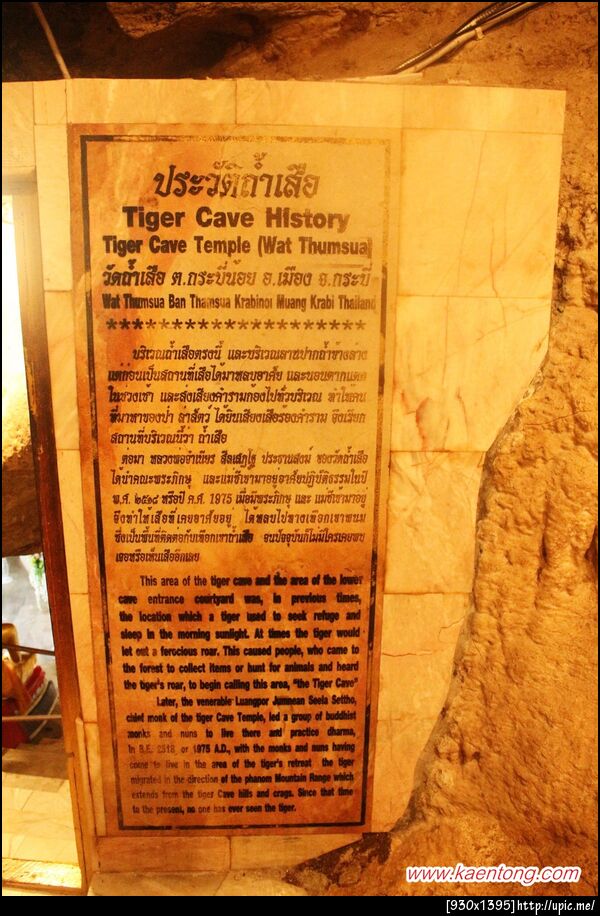 ประวัติถ้ำเสือ
Tiger Cave History
Tiger Cave Temple (Wat Thumsua)
วัดถ้ำเสือ ต.กระบี่น้อย อ.เมือง จ.กระบี่
Wat Thumsua Ban Thamsua Krabinoi Muang Krabi Thailand
********************
บริเวณถ้ำเสือตรงนี้ และบริเวณลานปากถ้ำข้างล่าง
แต่ก่อนเป็นสถานที่เสือได้มาหลบอาศัย และนอนตากแดด
ในช่วงเช้า และส่งเสียงคำรามก้องไปทั่วบริเวณ ทำให้คน
ที่มาหาของป่า ล่าสัตว์ ได้ยินเสียงเสือร้องคำราม จึงเรียก
สถานที่บริเวณนี้ว่า ถ้ำเสือ
ต่อมา หลวงพ่อจำเนียร สีลเสฏโฐ ประธานสงฆ์ ของวัดถ้ำเสือ
ได้นำคณะพระภิกษุ และแม่ชีเข้ามาอยู่อาศัยปฏิบัติธรรมในปี
พ.ศ. ๒๕๑๘ หรือปี ค.ศ. 1975 เมื่อมีพระภิกษุ และ แม่ชีเข้ามาอยู่
จึงทำให้เสือที่เคยอาศัยอยู่ ได้หลบไปทางเทือกเขาพนม
ซึ่งเป็นพื้นที่ติดต่อกับเทือกเขาถ้ำเสือ จนปัจจุบันก็ไม่มีใครเคยพบ
เจอหรือเห็นเสืออีกเลย
This area of the tiger cave and the area of the lower
cave entrance courtyard was, in previous times,
the location which a tiger used to seek refuge and
sleep in the morning sunlight. At times the tiger would
let out a ferocious roar. This caused people, who came to
the forest to collect items or hunt for animals and heard
the tiger's roar, to begin calling this area, "the Tiger Cave"
Later, the venerable Luangpor Jumnean Seela Settho,
chief monk of the tiger Cave Temple, led a group of buddhist
monks and nuns to live there and practice dharma,
In B.E. 2518, or 1975 A.D., with the monks and nuns having
come to live in the area of the tiger's retreat the tiger
migrated in the direction of the phanom Mountain Range which
extends from the tiger Cave hills and crags. Since that time
to the present, no one has ever seen the tiger.
www.kaentong.com
[930x1395]http://upic.me/